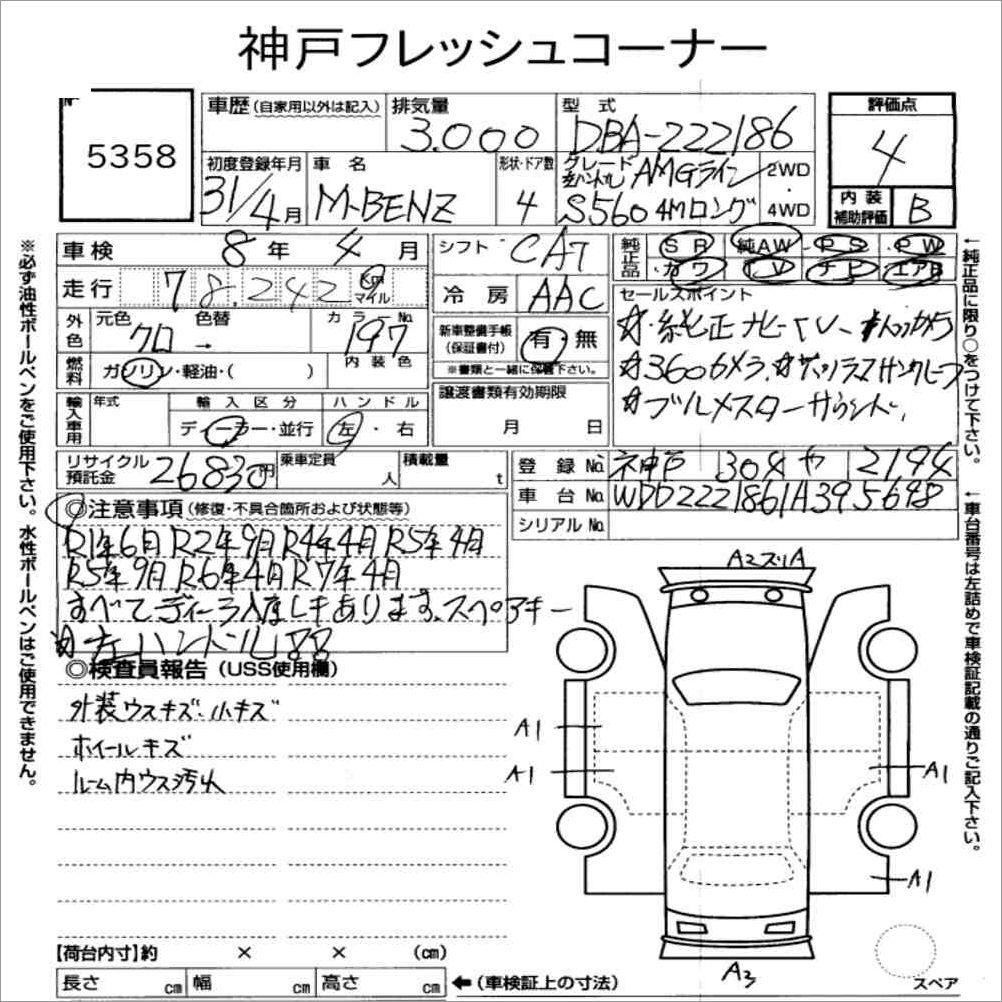 神戸フレッシュコーナー
5358
車歴 (自家用以外は記入)
排気量
3.000
型式
DBA-222186
評価点
4
初度登録年月
31/4月
車名
M-BENZ
形状・ドア数
4
グレード
左ハンドル AMGライン
S560 4Mロング
2WD
・
4WD
内装
補助評価
B
車検 8年 4月
シフト CA7
純正品
SR・純AW・PS・PW
・カワ・TV・ナビ・エアB
走行 78.242 km
マイル
冷房 AAC
セールスポイント
外色
元色
クロ
色替
→
カラーNo.
197
内装色
新車整備手帳
(保証書付)
有・無
※書類と一緒に保管下さい。
☆・純正ナビ-TV-
☆360カメラ
☆ブルメスターサウンド,
燃料
ガソリン・軽油・( )
譲渡書類有効期限
月 日
輸入車用
年式
輸入区分
ディーラー・並行
ハンドル
左・右
リサイクル
預託金
26830円
乗車定員
人
積載量
t
登録No. 神戸 304 や 2194
車台No. WDD2221861A395698
シリアルNo.
◎注意事項 (修復・不具合箇所および状態等)
R1年6月 R2年9月 R4年4月 R5年4月
R5年9月 R6年4月 R7年4月
すべてディーラ入庫しております。スペアキー
☆左ハンドル
◎検査員報告 (USS使用欄)
外装ウスキズ・小キズ
ホイールキズ
ルーム内ウス汚れ
A2スリA
A1
A1
A1
A1
A3
スペア
【荷台内寸】約 × × (cm)
長さ cm 幅 cm 高さ cm ←(車検証上の寸法)
※必ず油性ボールペンをご使用下さい。水性ボールペンはご使用できません。
←純正品に限り○をつけて下さい。
←車台番号は左詰めで車検証記載の通りご記入下さい。